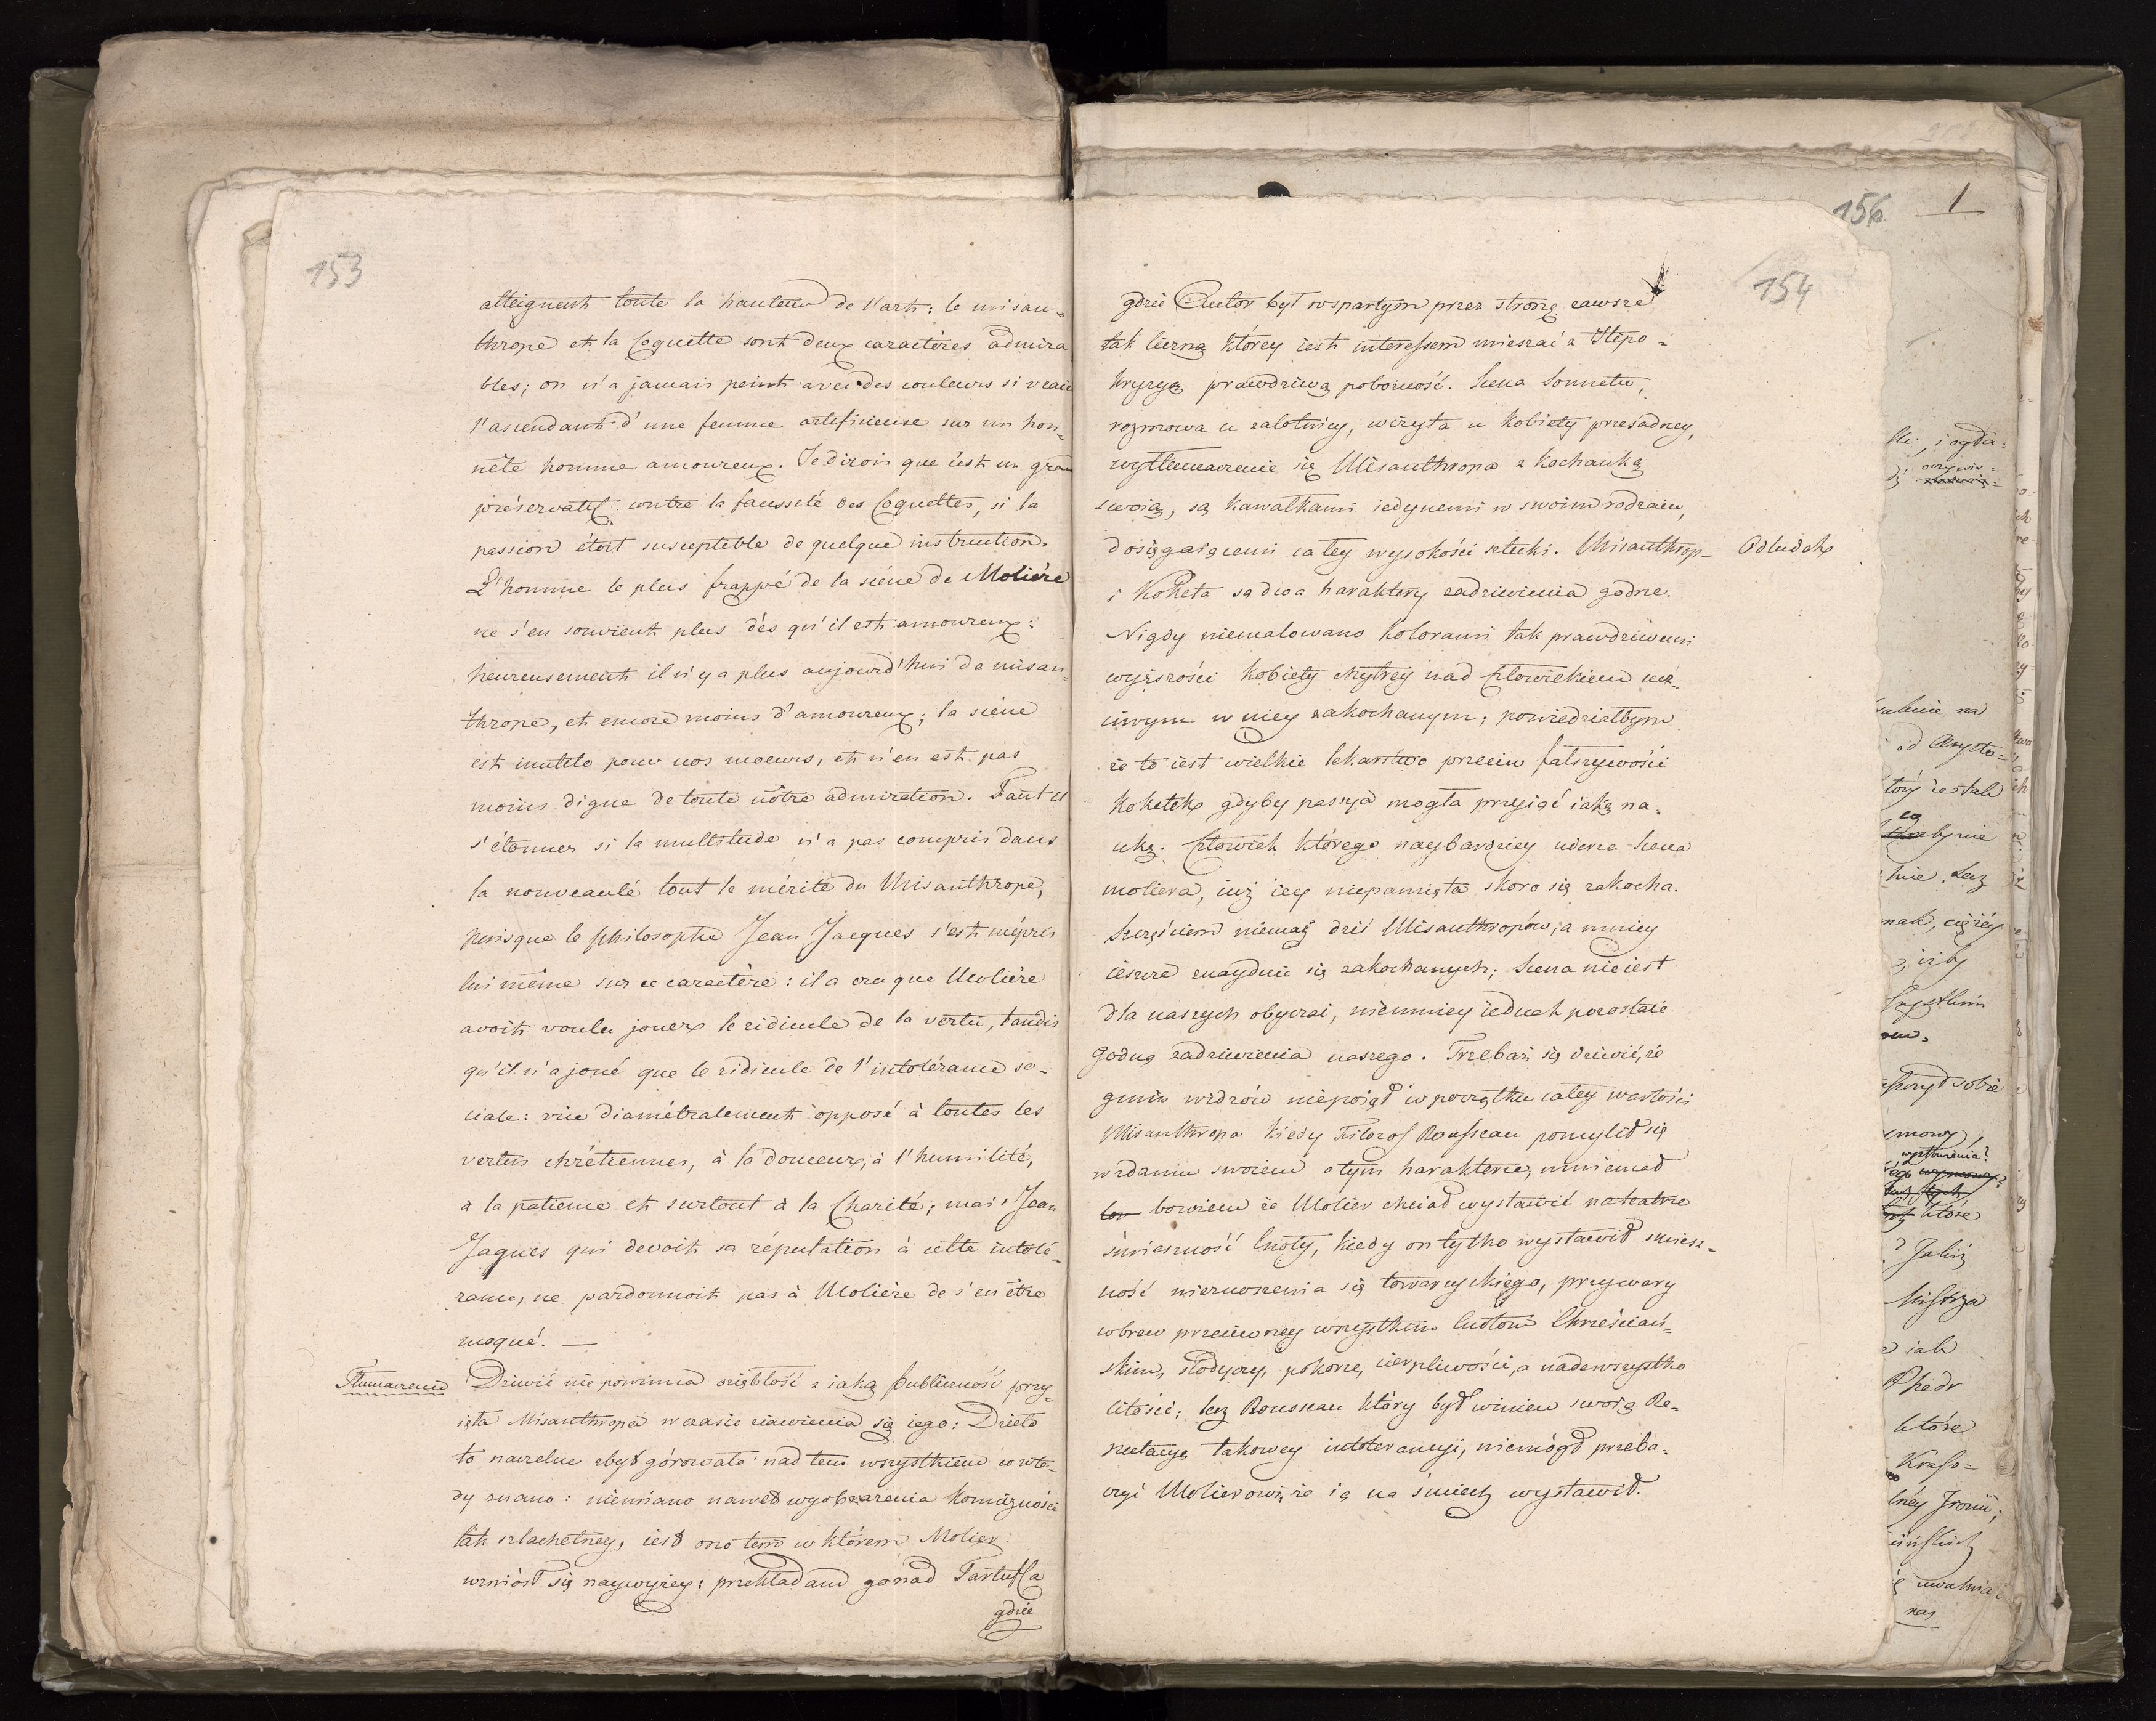 153
atteignent toute la hauteur de l'art: le misan-
thrope et la Coquette sont deux caractères admira
bles; on n'a jamais peint avec des couleurs si vraies
l'ascendant d'une femme artificieuse sur un hon-
nête homme amoureux. Je dirois que c'est un grand
préservatif contre la fausseté des Coquettes, si la
passion étoit susceptible de quelque instruction.
L'homme le plus frappé de la scène de Molière
ne s'en souvient plus dès qu'il est amoureux:
heureusement il n'y a plus aujourd'hui de misan-
thrope, et encore moins d'amoureux; la scène
est inutile pour nos moeurs, et n'en est pas
moins digne de toute nôtre admiration. Faut il
s'étonner si la multitude n'a pas compris dans
la nouveauté tout le mérite du Misanthrope,
puisque le philosophe Jean Jacques s'est mépris
lui même sur ce caractère: il a cru que Molière
avoit voulu jouer le ridicule de la vertu, tandis
qu'il n'a joué que le ridicule de l'intolérance so-
ciale: vice diamétralement opposé à toutes les
vertus chrétiennes, à la douceur, à l'humilité,
à la patience et surtout à la Charité; mais Jean
Jaques qui devoit sa réputation à cette intolé-
rance, ne pardonnoit pas à Molière de s'en être
moqué. —
Tłumaczenie Dziwić nie powinna oziębłość z iaką Publiczność przy-
ięta Misanthropa w czasie ziawienia się iego: Dzieło
to naczelne zbyt górowało nad tem wszystkiem co wte-
dy znano: niemiano nawet wyobrażenia komiczności
tak szlachetney, iest ono tem w którem Molier
wzniósł się naywyżey; przekładam go nad Tartuffa
gdzie
156 1
154
gdzie Autor był wspartym przez stronę zawsze
tak liczną którey iest interessem mieszać z Hipo-
kryzyą prawdziwą pobożność. Scena Sonnetu,
rozmowa u zalotnicy, wizyta u kobiety przesadney,
wytłumaczenie się Misanthropa z kochanką
swoią, są kawałkami iedynemi w swoim rodzaiu,
dosięgaiącemi całey wysokości sztuki. Misanthrop- Odludek
i Koketa są dwa haraktery zadziwienia godne.
Nigdy niemalowano kolorami tak prawdziwemi
wyższości kobiety chytrey nad Człowiekiem ucz-
ciwym w niey zakochanym; powiedziałbym
że to iest wielkie lekarstwo przeciw fałszywości
Koketek gdyby passya mogła przyiąć iaką na-
ukę. Człowiek którego naybardziey uderza Scena
moliera, iuż iey niepamięta skoro się zakocha.
Szczęściem niemasz dziś Misanthropów, a mniey
ieszcze znayduie się zakochanych; Scena nie iest
dla naszych obyczai, niemniey iednak pozostaie
godną zadziwienia naszego. Trzebaż się dziwić, że
gmin widzów niepoiął w początku całey wartości
Misanthropa kiedy Filozof Rousseau pomylił się
w zdaniu swoiem o tym harakterze, mniemał
bowiem że Molier chciał wystawić na teatrze
śmieszność Cnoty, kiedy on tylko wystawił smiesz-
ność nieznoszenia się towarzyskiego, przywary
wbrew przeciwney wszystkim Cnotom Chrześciań-
skim, słodyczy, pokorze, cierpliwości, a nadewszystko
litości; lecz Rousseau który był winien swoią Re-
putacyę takowey intolerancyi, niemógł przeba-
czyć Molierowi, że ią na śmiech wystawił.